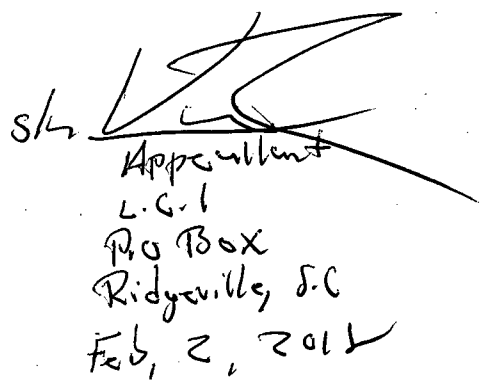 s/
Appeallant
L.C.I
P.O Box
Ridgeville, S.C
Feb, 2, 201